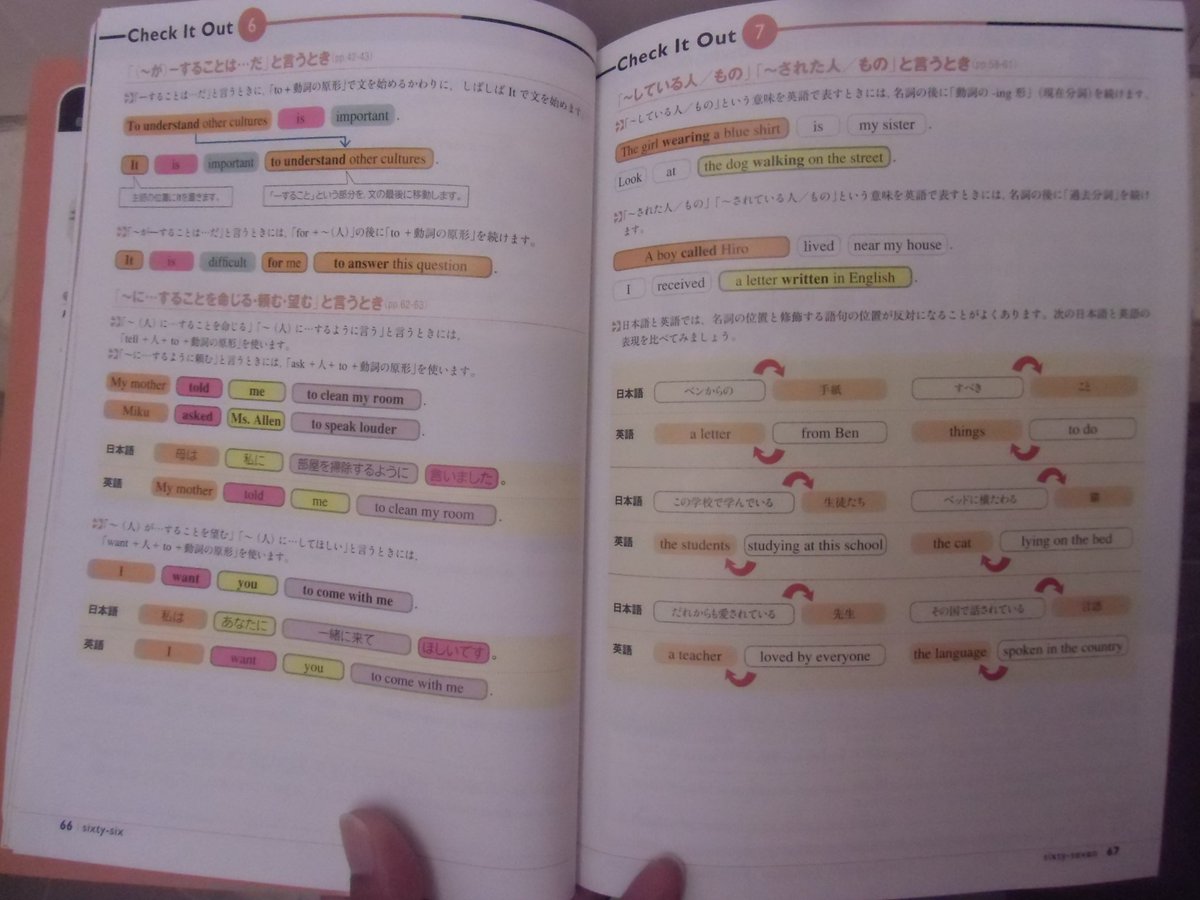 Check It Out 6
「(〜が)ーすることは…だ」と言うとき(pp.42-43)
「ーすることは…だ」と言うときに、「to＋動詞の原形」で文を始めるかわりに、しばしば It で文を始めます。
To understand other cultures is important .
It is important to understand other cultures .
主語の位置にItを置きます。 「ーすること」という部分を、文の最後に移動します。
「〜がーすることは…だ」と言うときには、「for＋〜(人)」の後に「to＋動詞の原形」を続けます。
It is difficult for me to answer this question .
「〜に…することを命じる・頼む・望む」と言うとき(pp.62-63)
「〜(人)に…することを命じる」「〜(人)に…するように言う」と言うときには、
「tell＋人＋to＋動詞の原形」を使います。
「〜に…するように頼む」と言うときには、「ask＋人＋to＋動詞の原形」を使います。
My mother told me to clean my room .
Miku asked Ms. Allen to speak louder .
日本語 母は 私に 部屋を掃除するように 言いました 。
英語 My mother told me to clean my room .
「〜(人)が…することを望む」「〜(人)に…してほしい」と言うときには、
「want＋人＋to＋動詞の原形」を使います。
I want you to come with me .
日本語 私は あなたに 一緒に来て ほしいです 。
英語 I want you to come with me .
66 sixty-six
Check It Out 7
「〜している人／もの」「〜された人／もの」と言うとき
「〜している人／もの」という意味を英語で表すときには、名詞の後に「動詞の -ing 形」(現在分詞)を続けます。
The girl wearing a blue shirt is my sister .
Look at the dog walking on the street .
「〜された人／もの」「〜されている人／もの」という意味を英語で表すときには、名詞の後に「過去分詞」を続け
ます。
A boy called Hiro lived near my house .
I received a letter written in English .
日本語と英語では、名詞の位置と修飾する語句の位置が反対になることがよくあります。次の日本語と英語の
表現を比べてみましょう。
日本語 ベンからの 手紙 すべき こと
英語 a letter from Ben things to do
日本語 この学校で学んでいる 生徒たち ベッドに横たわる 猫
英語 the students studying at this school the cat lying on the bed
日本語 だれからも愛されている 先生 その国で話されている 言語
英語 a teacher loved by everyone the language spoken in the country
sixty-seven 67